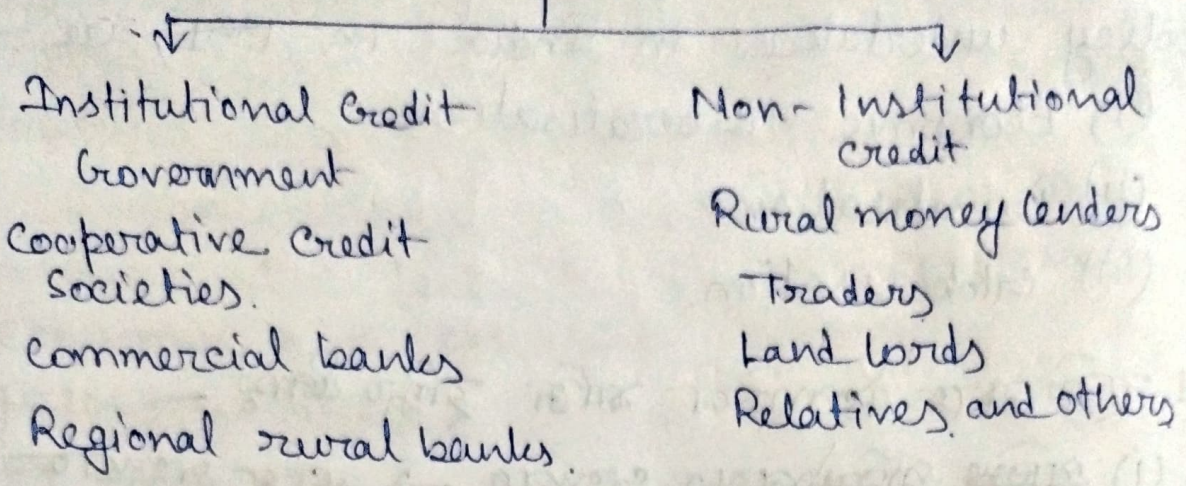 Institutional Credit
Government
Cooperative Credit
Societies.
Commercial banks
Regional rural banks.
Non-Institutional
credit
Rural money lenders
Traders
Land lords
Relatives and others